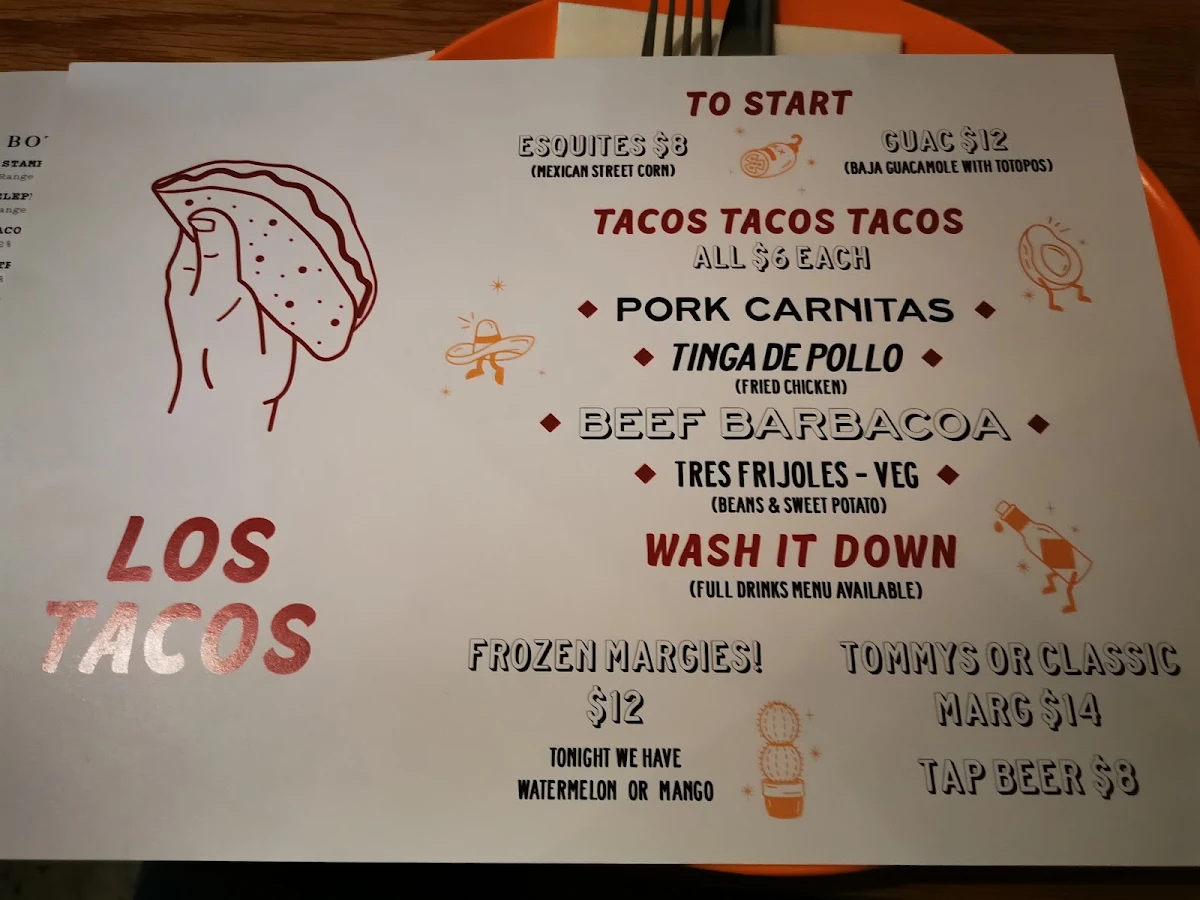 BO
STAM
Range
ange
ACO
LOS
TACOS
TO START
ESQUITES $8
(MEXICAN STREET CORN)
GUAC $12
(BAJA GUACAMOLE WITH TOTOPOS)
TACOS TACOS TACOS
ALL $6 EACH
PORK CARNITAS
TINGA DE POLLO
(FRIED CHICKEN)
BEEF BARBACOA
TRES FRIJOLES - VEG
(BEANS & SWEET POTATO)
WASH IT DOWN
(FULL DRINKS MENU AVAILABLE)
FROZEN MARGIES!
$12
TONIGHT WE HAVE
WATERMELON OR MANGO
TOMMYS OR CLASSIC
MARG $14
TAP BEER $8